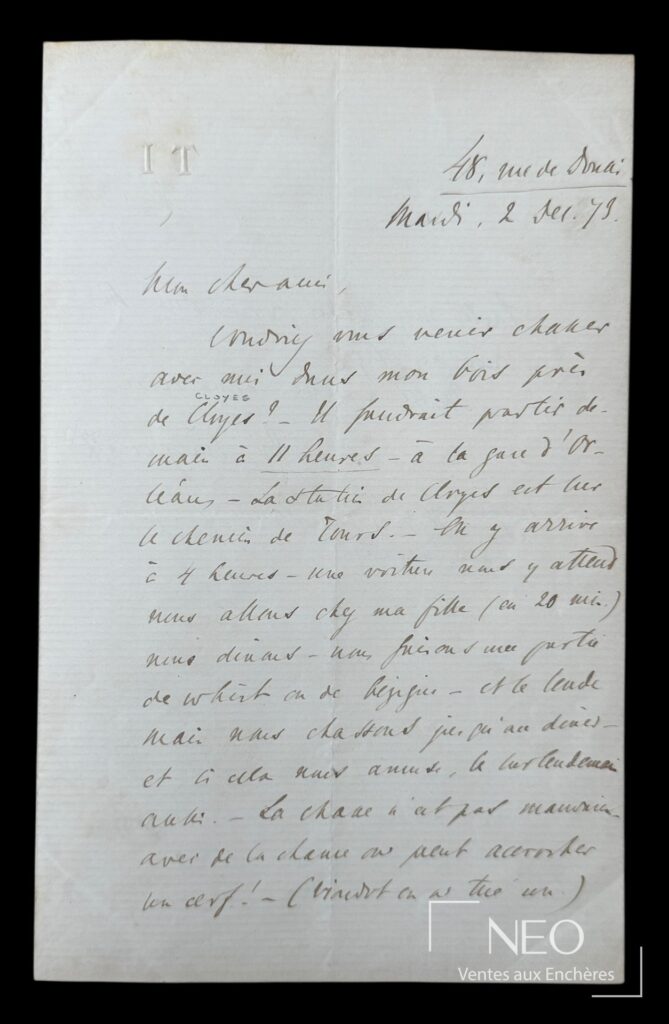 I T
48, rue de Douai.
Mardi, 2 Dec. 73.
Mon cher ami,
Voudriez vous venir chasser
avec moi dans mon bois près
CLOYES
de Cloyes? – Il faudrait partir de-
main à 11 heures – à la gare d'Or-
léans – La station de Cloyes est sur
le chemin de Tours. – On y arrive
à 4 heures – une voiture nous y attend
nous allons chez ma fille (en 20 min.)
nous dinons – nous faisons une partie
de whist ou de bézigue – et le lende
main nous chassons jusqu'au diner –
et si cela nous amuse, le surlendemain
aussi. – La chasse n'est pas mauvaise –
avec de la chance on peut accrocher
un cerf! – (Viardot en a tué un.)
NEO
Ventes aux Enchères